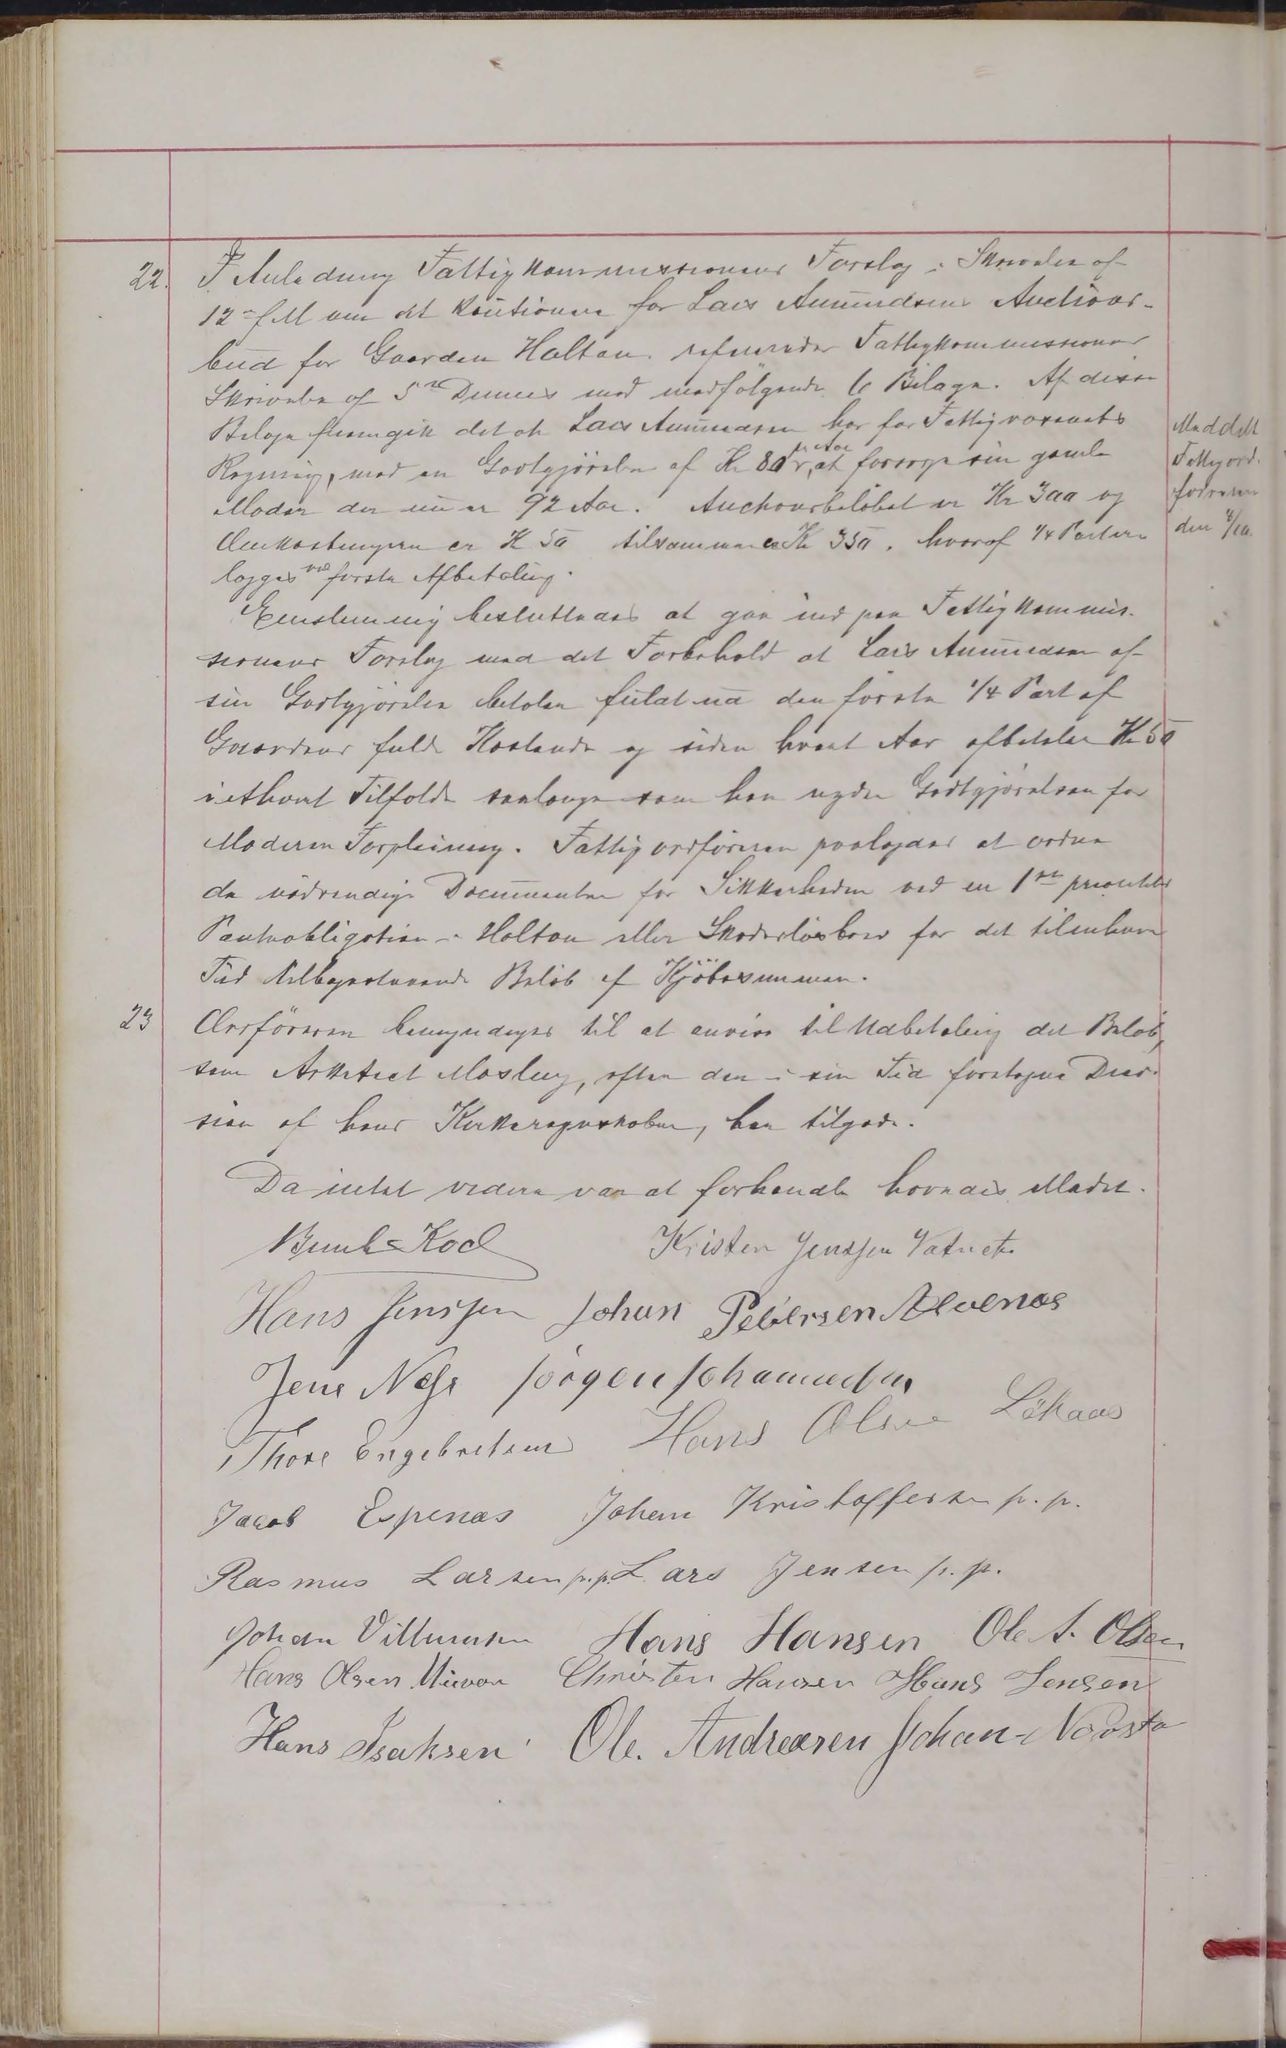 22. I Anledning Fattigkommissionens Forslag i Skrivelse af
12te f.M om at kautionere for Lars Amundsens Auctions-
bud for Gaarden Holtan refereredes Fattigkommissionens
Skrivelse af 5te Dennes med medfölgende 6 Bilage. Af disse
Bilage fremgik det at Lars Amundsen har for Fattigvæsenets
Regning, med en Godtgjörelse af Kr 80 pr Aar, at forsörge sin gamle
Moder der nu er 92 Aar. Auctionsbelöbet er Kr 300 og
Omkostningerne er Kr 50 tilsammen Kr 350, hvoraf 1/4 Parten
lægges ved förste Afbetaling.
Meddelt
Fattigord-
föreren
den 4/10.
Eenstemmig besluttedes at gaa ind paa Fattigkommis-
sionens Forslag med det Forbehold at Lars Amundsen af
sin Godtgjörelse betaler den förste 1/4 Part af
Gaardens fulde Kostende og siden hvert Aar afbetaler Kr 50
i ethvert Tilfælde saalænge som han nyder Godtgjörelsen for
Moderens Forpleining. Fattigordföreren paalægges at ordne
de nödvendige Documenter for Sikkerheden ved en 1ste prioritets
Panteobligation i Holtan eller Skadeslösbrev for det til enhver
Tid tilbagestaaende Belöb af Kjöbesummen.
23 Ordföreren bemyndiges til at anvise til Udbetaling det Belöb,
som Arkitect Mosling, efter den i sin Tid foretagne Deci-
sion af hans Kirkeregnskaber, har tilgode.
Da intet videre var at forhandle hævedes Mödet.
Bernh. Kock Kristen Jenssen Vatnets
Hans Jenssen Johan Petersen Alvenos
Jens Næss Jörgen Johannesen
Thore Engebretsen Hans Olsen Löhaas
Jacob Espenæs Johan Kristoffersen p.p.
Rasmus Larsen p.p. Lars Jensen p.p.
Johan Villumsen Hans Hansen Ole A. Olsen
Hans Olsen Christen Hansen Hans Jensen
Hans Isaksen Ole Andreasen Johan